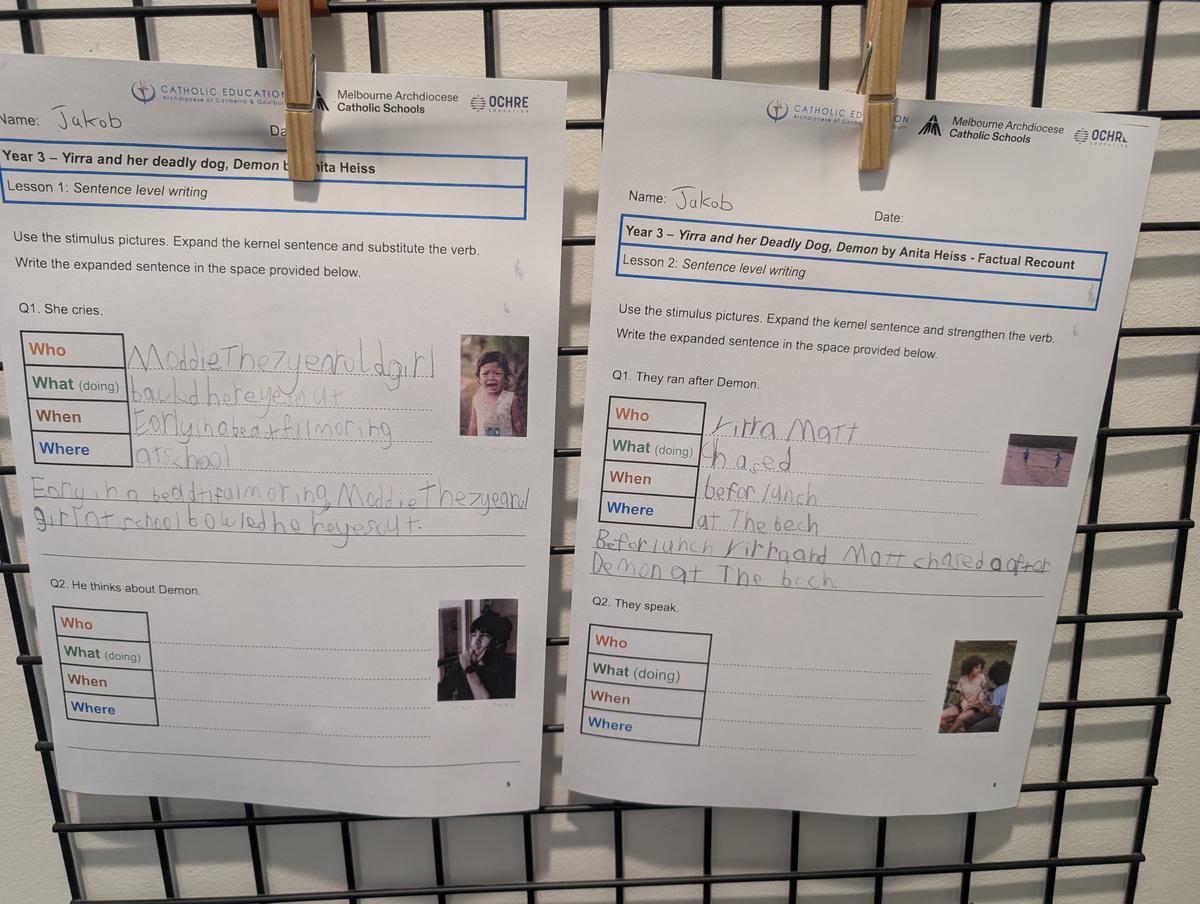 CATHOLIC EDUCATION
Archdiocese of Canberra & Goulburn
Melbourne Archdiocese
Catholic Schools
OCHRE
EDUCATION
Name: Jakob
Da
Year 3 – Yirra and her deadly dog, Demon b nita Heiss
Lesson 1: Sentence level writing
Use the stimulus pictures. Expand the kernel sentence and substitute the verb.
Write the expanded sentence in the space provided below.
Q1. She cries.
Who Maddie The 7 year old girl
What (doing) bauled her eyes out
When Early in a beatifulmoring
Where at school
Early in a beadtifulmoring Maddie The 7 yearol
girl at school bowled her eyes out.
Q2. He thinks about Demon.
Who
What (doing)
When
Where
5
CATHOLIC ED ON
Archdiocese of Canbe burn
Melbourne Archdiocese
Catholic Schools
OCHR
EDUCATION
Name: Jakob
Date:
Year 3 – Yirra and her Deadly Dog, Demon by Anita Heiss - Factual Recount
Lesson 2: Sentence level writing
Use the stimulus pictures. Expand the kernel sentence and strengthen the verb.
Write the expanded sentence in the space provided below.
Q1. They ran after Demon.
Who Yirra Matt
What (doing) chased
When befor lunch
Where at The bech
Befor lunch Yirra and Matt chased a after
Demon at The bech
Q2. They speak.
Who
What (doing)
When
Where
6